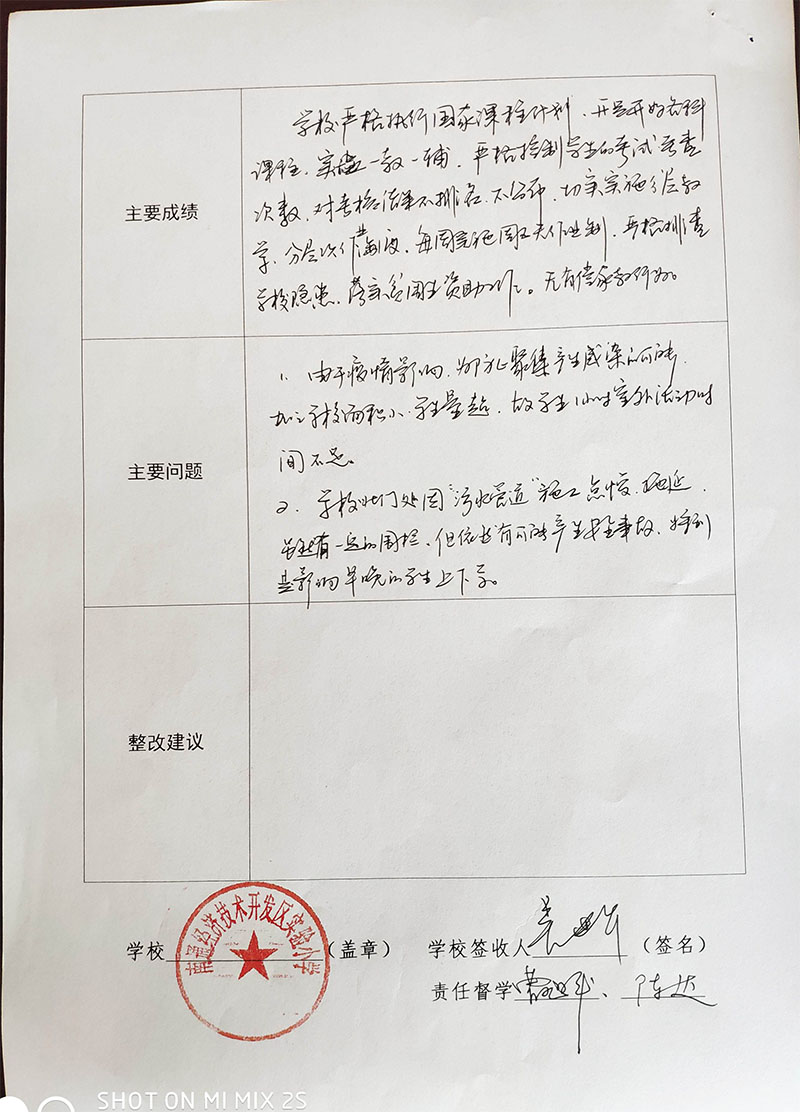 主要成绩
学校严格执行国家课程计划，开足开好各科
课程，实施一教一辅，严格控制学生的考试考查
次数，对考检结果不排名，不公布，切实实施分层教
学，分层次作业制度，每周实施周三无作业制，严格排查
学校隐患，落实贫困生资助工作。无有偿家教行为。
主要问题
1、由于疫情影响，为防止聚集产生感染的可能，
加之学校面积小，学生量超，故学生1小时室外活动时
间不足。
2、学校北门处因“污水管道”施工点慢，拖延，
虽然有一定的围栏，但依然有可能产生安全事故，特别
是影响早晚的学生上下学。
整改建议
学校（盖章）
南通经济技术开发区实验小学
学校签收人（签名）
责任督学 、陈达
SHOT ON MI MIX 2S